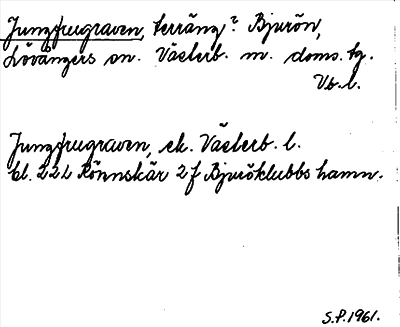 Jungfrugraven, terräng? Bjurön,
Lövångers sn. Västerb. m. doms. tg.
Vb. l.
Jungfrugraven, ek. Västerb. l.
bl. 22L Rönnskär 2f Bjuröklubbs hamn.
S.P. 1961.